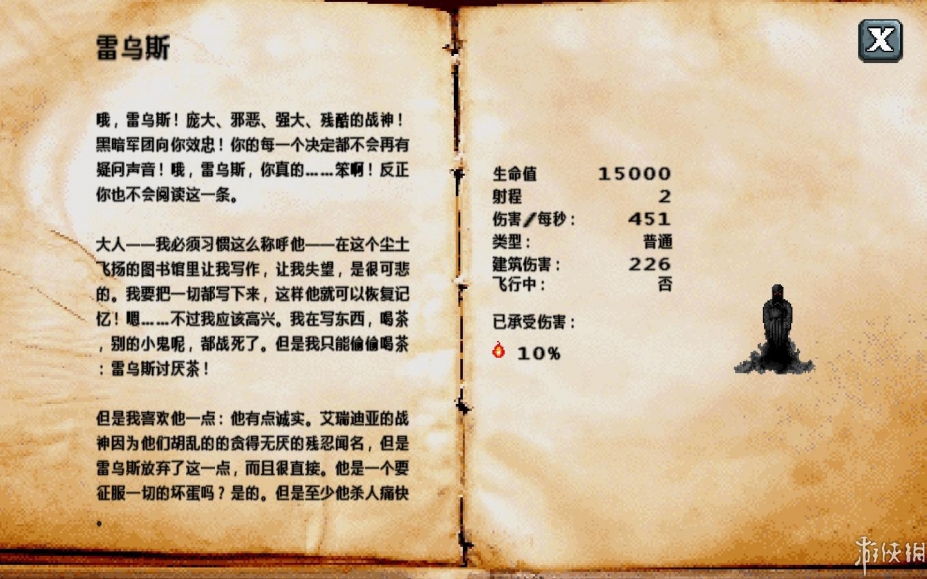 雷乌斯
哦，雷乌斯！庞大、邪恶、强大、残酷的战神！
黑暗军团向你效忠！你的每一个决定都不会再有
疑问声音！哦，雷乌斯，你真的……笨啊！反正
你也不会阅读这一条。
大人——我必须习惯这么称呼他——在这个尘土
飞扬的图书馆里让我写作，让我失望，是很可悲
的。我要把一切都写下来，这样他就可以恢复记
忆！嗯……不过我应该高兴。我在写东西，喝茶
，别的小鬼呢，都战死了。但是我只能偷偷喝茶
：雷乌斯讨厌茶！
但是我喜欢他一点：他有点诚实。艾瑞迪亚的战
神因为他们胡乱的的贪得无厌的残忍闻名，但是
雷乌斯放弃了这一点，而且很直接。他是一个要
征服一切的坏蛋吗？是的。但是至少他杀人痛快
。
X
生命值 15000
射程 2
伤害/每秒： 451
类型： 普通
建筑伤害： 226
飞行中： 否
已承受伤害：
10%
游侠网